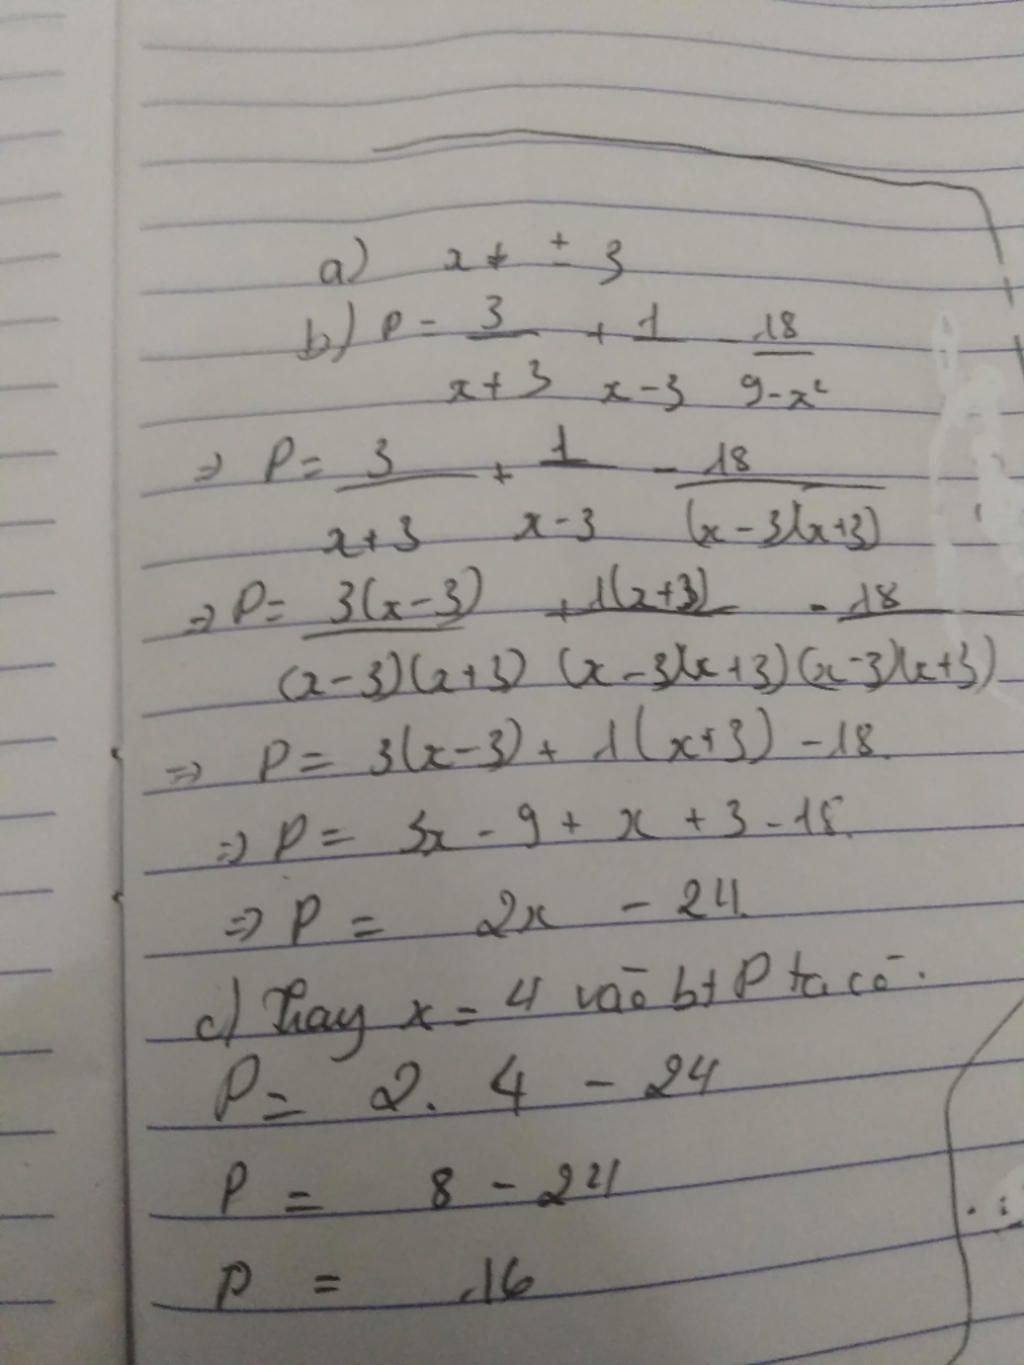 a) x ≠ ± 3
b) P = 3/(x+3) + 1/(x-3) - 18/(9-x²)
=> P = 3/(x+3) + 1/(x-3) - 18/((x-3)(x+3))
=> P = 3(x-3)/((x-3)(x+3)) + 1(x+3)/((x-3)(x+3)) - 18/((x-3)(x+3))
=> P = 3(x-3) + 1(x+3) - 18.
=> P = 3x - 9 + x + 3 - 18.
=> P = 2x - 24.
c) Thay x = 4 vào bt P ta có.
P = 2. 4 - 24
P = 8 - 24
P = .16